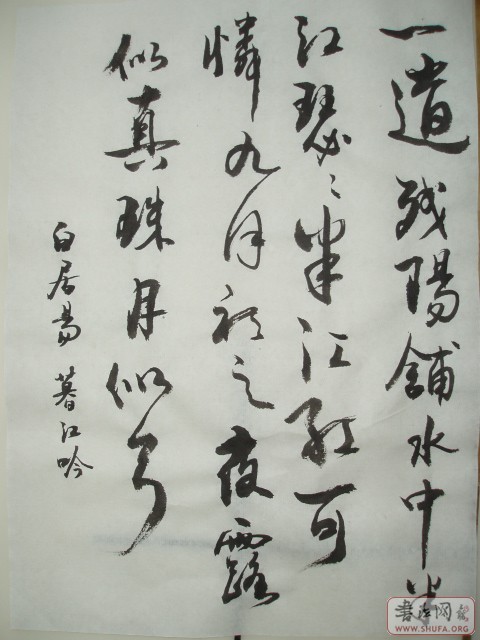 一道残陽舖水中半
江瑟〻半江紅可
憐九月初三夜露
似真珠月似弓
白居易 暮江吟
書法网
WWW.SHUFA.ORG